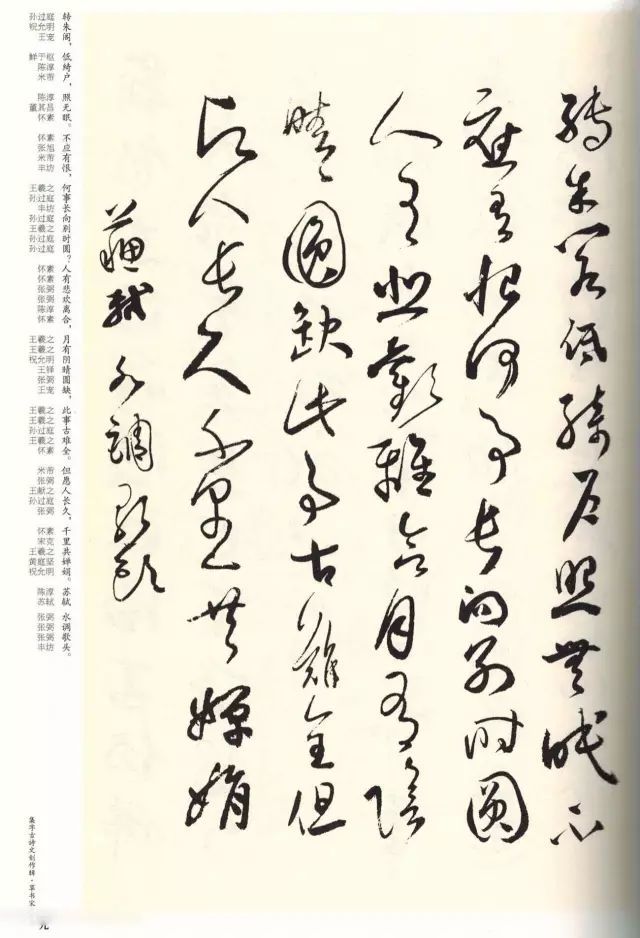 轉朱閣低綺戶照無眠不
應有恨何事長向別時圓
人有悲歡離合月有陰
晴圓缺此事古難全但
願人長久千里共嬋娟
蘇軾 水調歌頭
孙过庭 转
祝允明 朱
王宠 阁，
鲜于枢 低
陈淳 绮
米芾 户，
陈淳 照
董其昌 无
怀素 眠。
怀素 不
张旭 应
米芾 有
丰坊 恨，
王羲之 何
孙过庭 事
丰坊 长
孙过庭 向
王羲之 别
孙过庭 时
孙过庭 圆？
怀素 人
怀素 有
张弼 悲
张弼 欢
陈淳 离
怀素 合，
王羲之 月
王羲之 有
祝允明 阴
王铎 晴
张弼 圆
王宠 缺，
王羲之 此
王羲之 事
孙过庭 古
王羲之 难
怀素 全。
米芾 但
张弼 愿
王献之 人
孙过庭 长
张弼 久，
怀素 千
宋克 里
王羲之 共
黄庭坚 婵
祝允明 娟。
陈淳 苏
苏轼 轼
张弼 水
张弼 调
张弼 歌
丰坊 头。
集字古诗文创作辑·草书宋
九